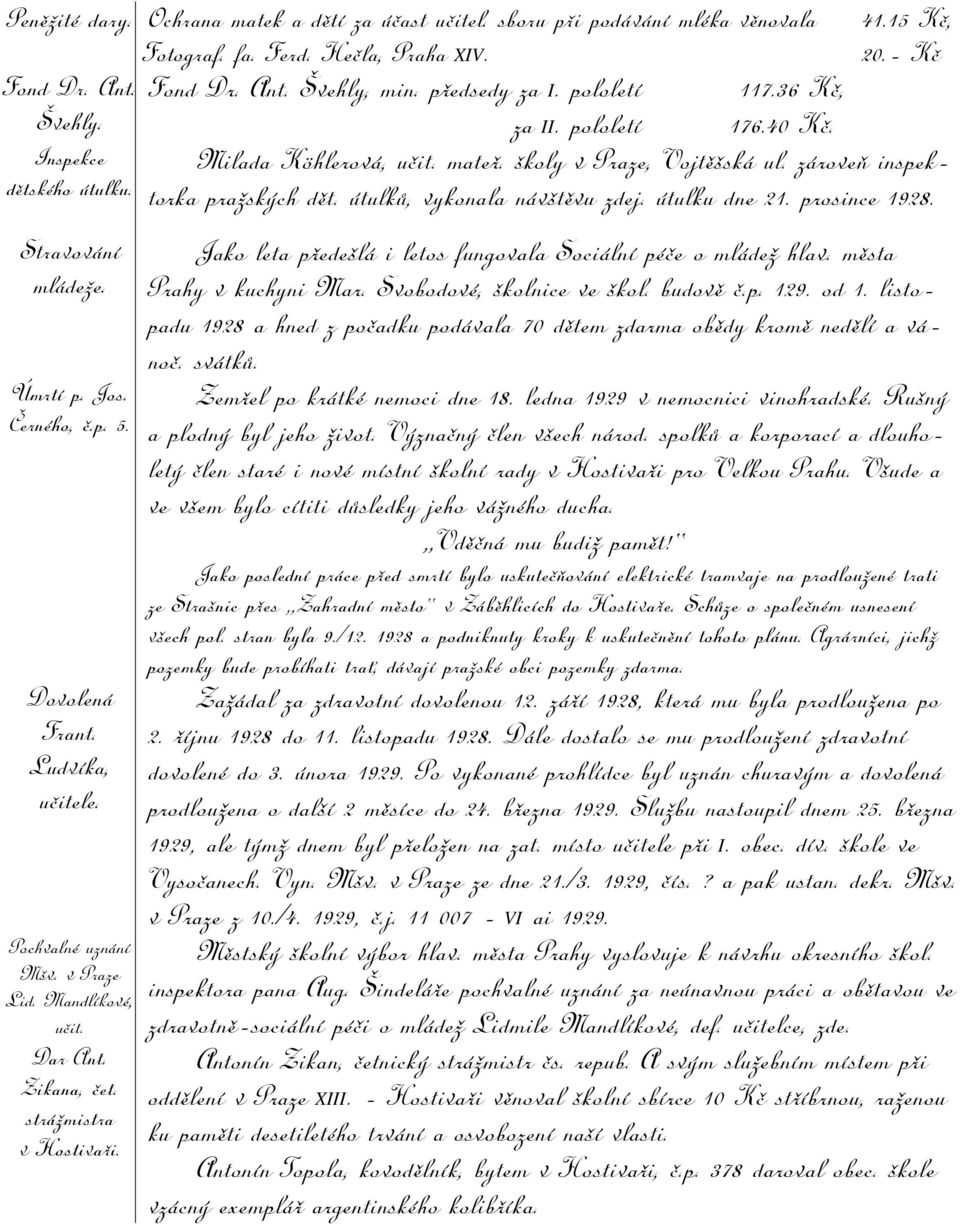 Peněžité dary.
Ochrana matek a dětí za účast učitel. sboru při podávání mléka věnovala 41.15 Kč,
Fotograf. fa. Ferd. Hečla, Praha XIV. 20. - Kč
Fond Dr. Ant.
Švehly.
Fond Dr. Ant. Švehly, min. předsedy za I. pololetí 117.36 Kč,
za II. pololetí 176.40 Kč.
Inspekce
dětského útulku.
Milada Köhlerová, učit. mateř. školy v Praze, Vojtěšská ul. zároveň inspek-
torka pražských dět. útulků, vykonala návštěvu zdej. útulku dne 21. prosince 1928.
Stravování
mládeže.
Jako leta předešlá i letos fungovala Sociální péče o mládež hlav. města
Prahy v kuchyni Mar. Svobodové, školnice ve škol. budově č.p. 129. od 1. listo-
padu 1928 a hned z počadku podávala 70 dětem zdarma obědy kromě nedělí a vá-
noč. svátků.
Úmrtí p. Jos.
Černého, č.p. 5.
Zemřel po krátké nemoci dne 18. ledna 1929 v nemocnici vinohradské. Rušný
a plodný byl jeho život. Význačný člen všech národ. spolků a korporací a dlouho-
letý člen staré i nové místní školní rady v Hostivaři pro Velkou Prahu. Všude a
ve všem bylo cítiti důsledky jeho vážného ducha.
„Vděčná mu budiž pamět!“
Jako poslední práce před smrtí bylo uskutečňování elektrické tramvaje na prodloužené trati
ze Strašnic přes „Zahradní město“ v Záběhlicích do Hostivaře. Schůze o společném usnesení
všech pol. stran byla 9./12. 1928 a podniknuty kroky k uskutečnění tohoto plánu. Agrárníci, jichž
pozemky bude probíhati trať, dávají pražské obci pozemky zdarma.
Dovolená
Frant.
Ludvíka,
učitele.
Zažádal za zdravotní dovolenou 12. září 1928, která mu byla prodloužena po
2. říjnu 1928 do 11. listopadu 1928. Dále dostalo se mu prodloužení zdravotní
dovolené do 3. února 1929. Po vykonané prohlídce byl uznán churavým a dovolená
prodloužena o další 2 měsíce do 24. března 1929. Službu nastoupil dnem 25. března
1929, ale týmž dnem byl přeložen na zat. místo učitele při I. obec. dív. škole ve
Vysočanech. Vyn. Mšv. v Praze ze dne 21./3. 1929, čís. ? a pak ustan. dekr. Mšv.
v Praze z 10./4. 1929, č.j. 11 007 - VI ai 1929.
Pochvalné uznání
Mšv. v Praze
Lid. Mandlíkové,
učit.
Městský školní výbor hlav. města Prahy vyslovuje k návrhu okresního škol.
inspektora pana Aug. Šindeláře pochvalné uznání za neúnavnou práci a obětavou ve
zdravotně-sociální péči o mládež Lidmile Mandlíkové, def. učitelce, zde.
Dar Ant.
Zikana, čet.
strážmistra
v Hostivaři.
Antonín Zikan, četnický strážmistr čs. repub. A svým služebním místem při
oddělení v Praze XIII. - Hostivaři věnoval školní sbírce 10 Kč stříbrnou, raženou
ku paměti desetiletého trvání a osvobození naší vlasti.
Antonín Topola, kovodělník, bytem v Hostivaři, č.p. 378 daroval obec. škole
vzácný exemplář argentinského kolibříka.